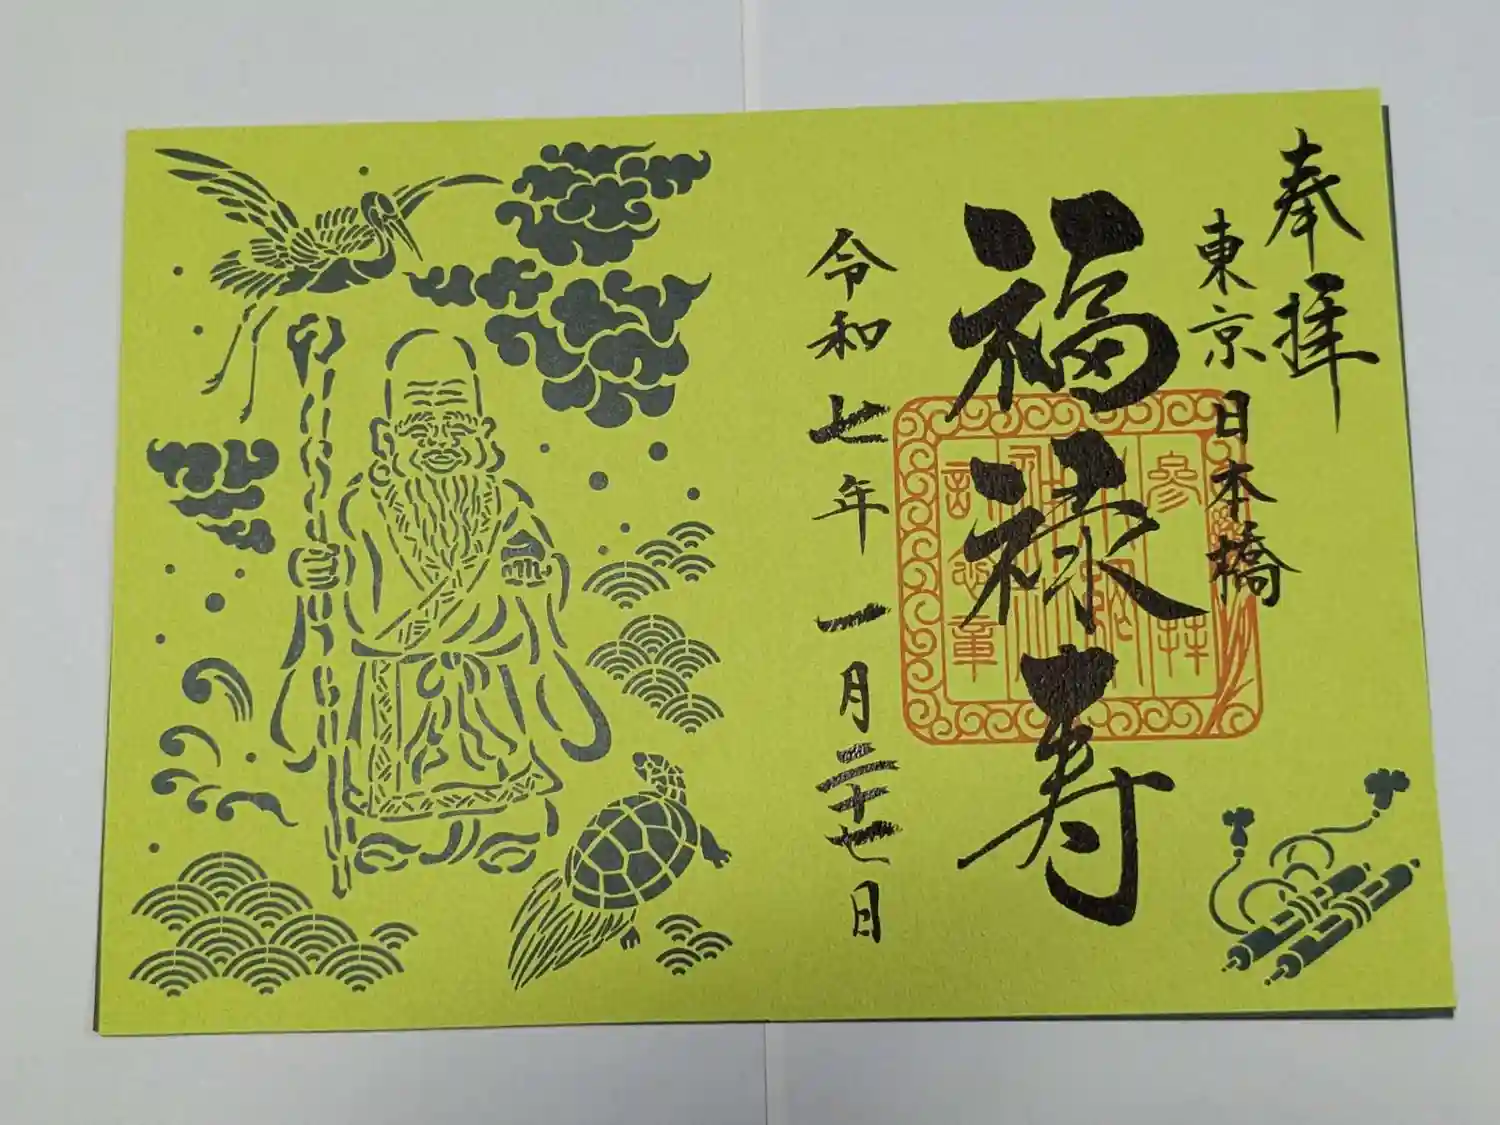 奉拝
東京 日本橋
福禄寿
令和七年 一月二十七日
參拝
記念章